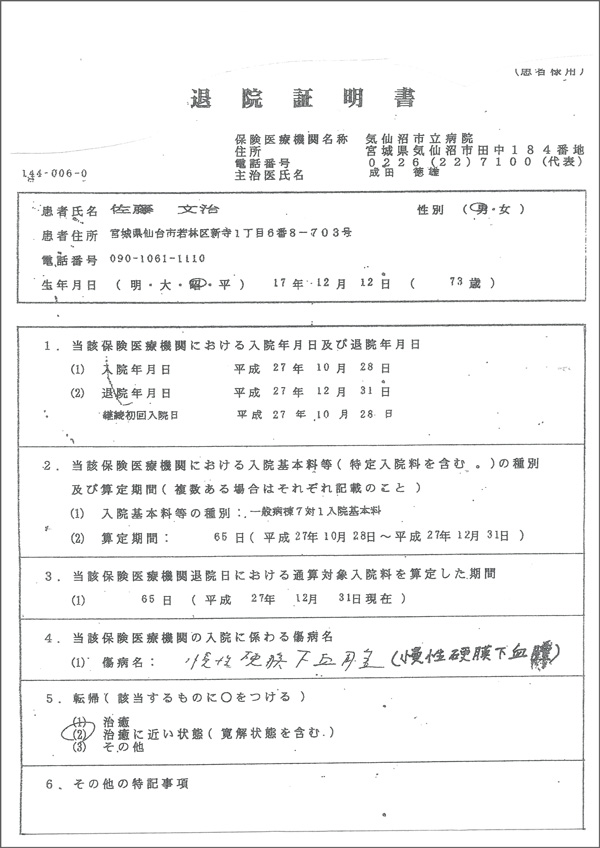 (患者様用)
退院証明書
保険医療機関名称 気仙沼市立病院
住所 宮城県気仙沼市田中184番地
電話番号 0226(22)7100(代表)
主治医氏名 成田 徳雄
144-006-0
患者氏名 佐藤 文治 性別 (男・女)
患者住所 宮城県仙台市若林区新寺1丁目6番8-703号
電話番号 090-1061-1110
生年月日 (明・大・昭・平) 17年 12月 12日 ( 73歳)
1. 当該保険医療機関における入院年月日及び退院年月日
(1) 入院年月日 平成 27年 10月 28日
(2) 退院年月日 平成 27年 12月 31日
継続初回入院日 平成 27年 10月 28日
2. 当該保険医療機関における入院基本料等(特定入院料を含む。)の種別
及び算定期間(複数ある場合はそれぞれ記載のこと)
(1) 入院基本料等の種別:一般病棟7対1入院基本料
(2) 算定期間: 65日(平成27年10月28日~平成27年12月31日)
3. 当該保険医療機関退院日における通算対象入院料を算定した期間
(1) 65日(平成 27年 12月 31日現在)
4. 当該保険医療機関の入院に係わる傷病名
(1) 傷病名: 慢性硬膜下血腫 (慢性硬膜下血腫)
5. 転帰(該当するものに○をつける)
(1) 治癒
(2) 治癒に近い状態(寛解状態を含む.)
(3) その他
6. その他の特記事項